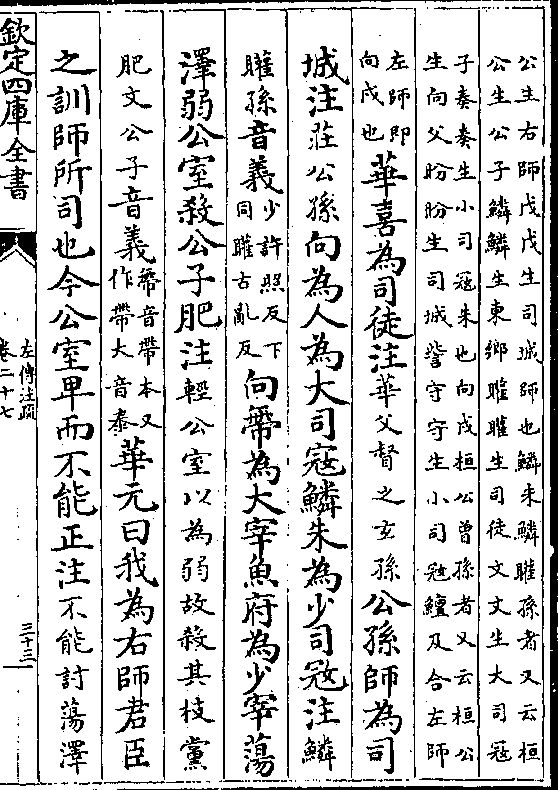 公生右師戊戊生司城師也鱗朱鱗矔孫者又云桓
公生公子鱗鱗生東鄉矔矔生司徒文文生大司冦
子奏奏生小司冦朱也向戌桓公曾孫者又云桓公
生向父盻盻生司城訾守守生小司冦鱣及合左師
左師即
向戌也
華喜為司徒注華父督之𤣥孫公孫師為司
城注莊公孫向為人為大司冦鱗朱為少司冦注鱗
矔孫音義
少許照反下
同矔古亂反
向𢄔為大宰魚府為少宰蕩
澤弱公室殺公子肥注輕公室以為弱故殺其枝黨
肥文公子音義
𢄔音帶本又
作帶大音泰
華元曰我為右師君臣
之訓師所司也今公室卑而不能正注不能討蕩澤
欽定四庫全書
左傳注疏
卷二十七
三十三